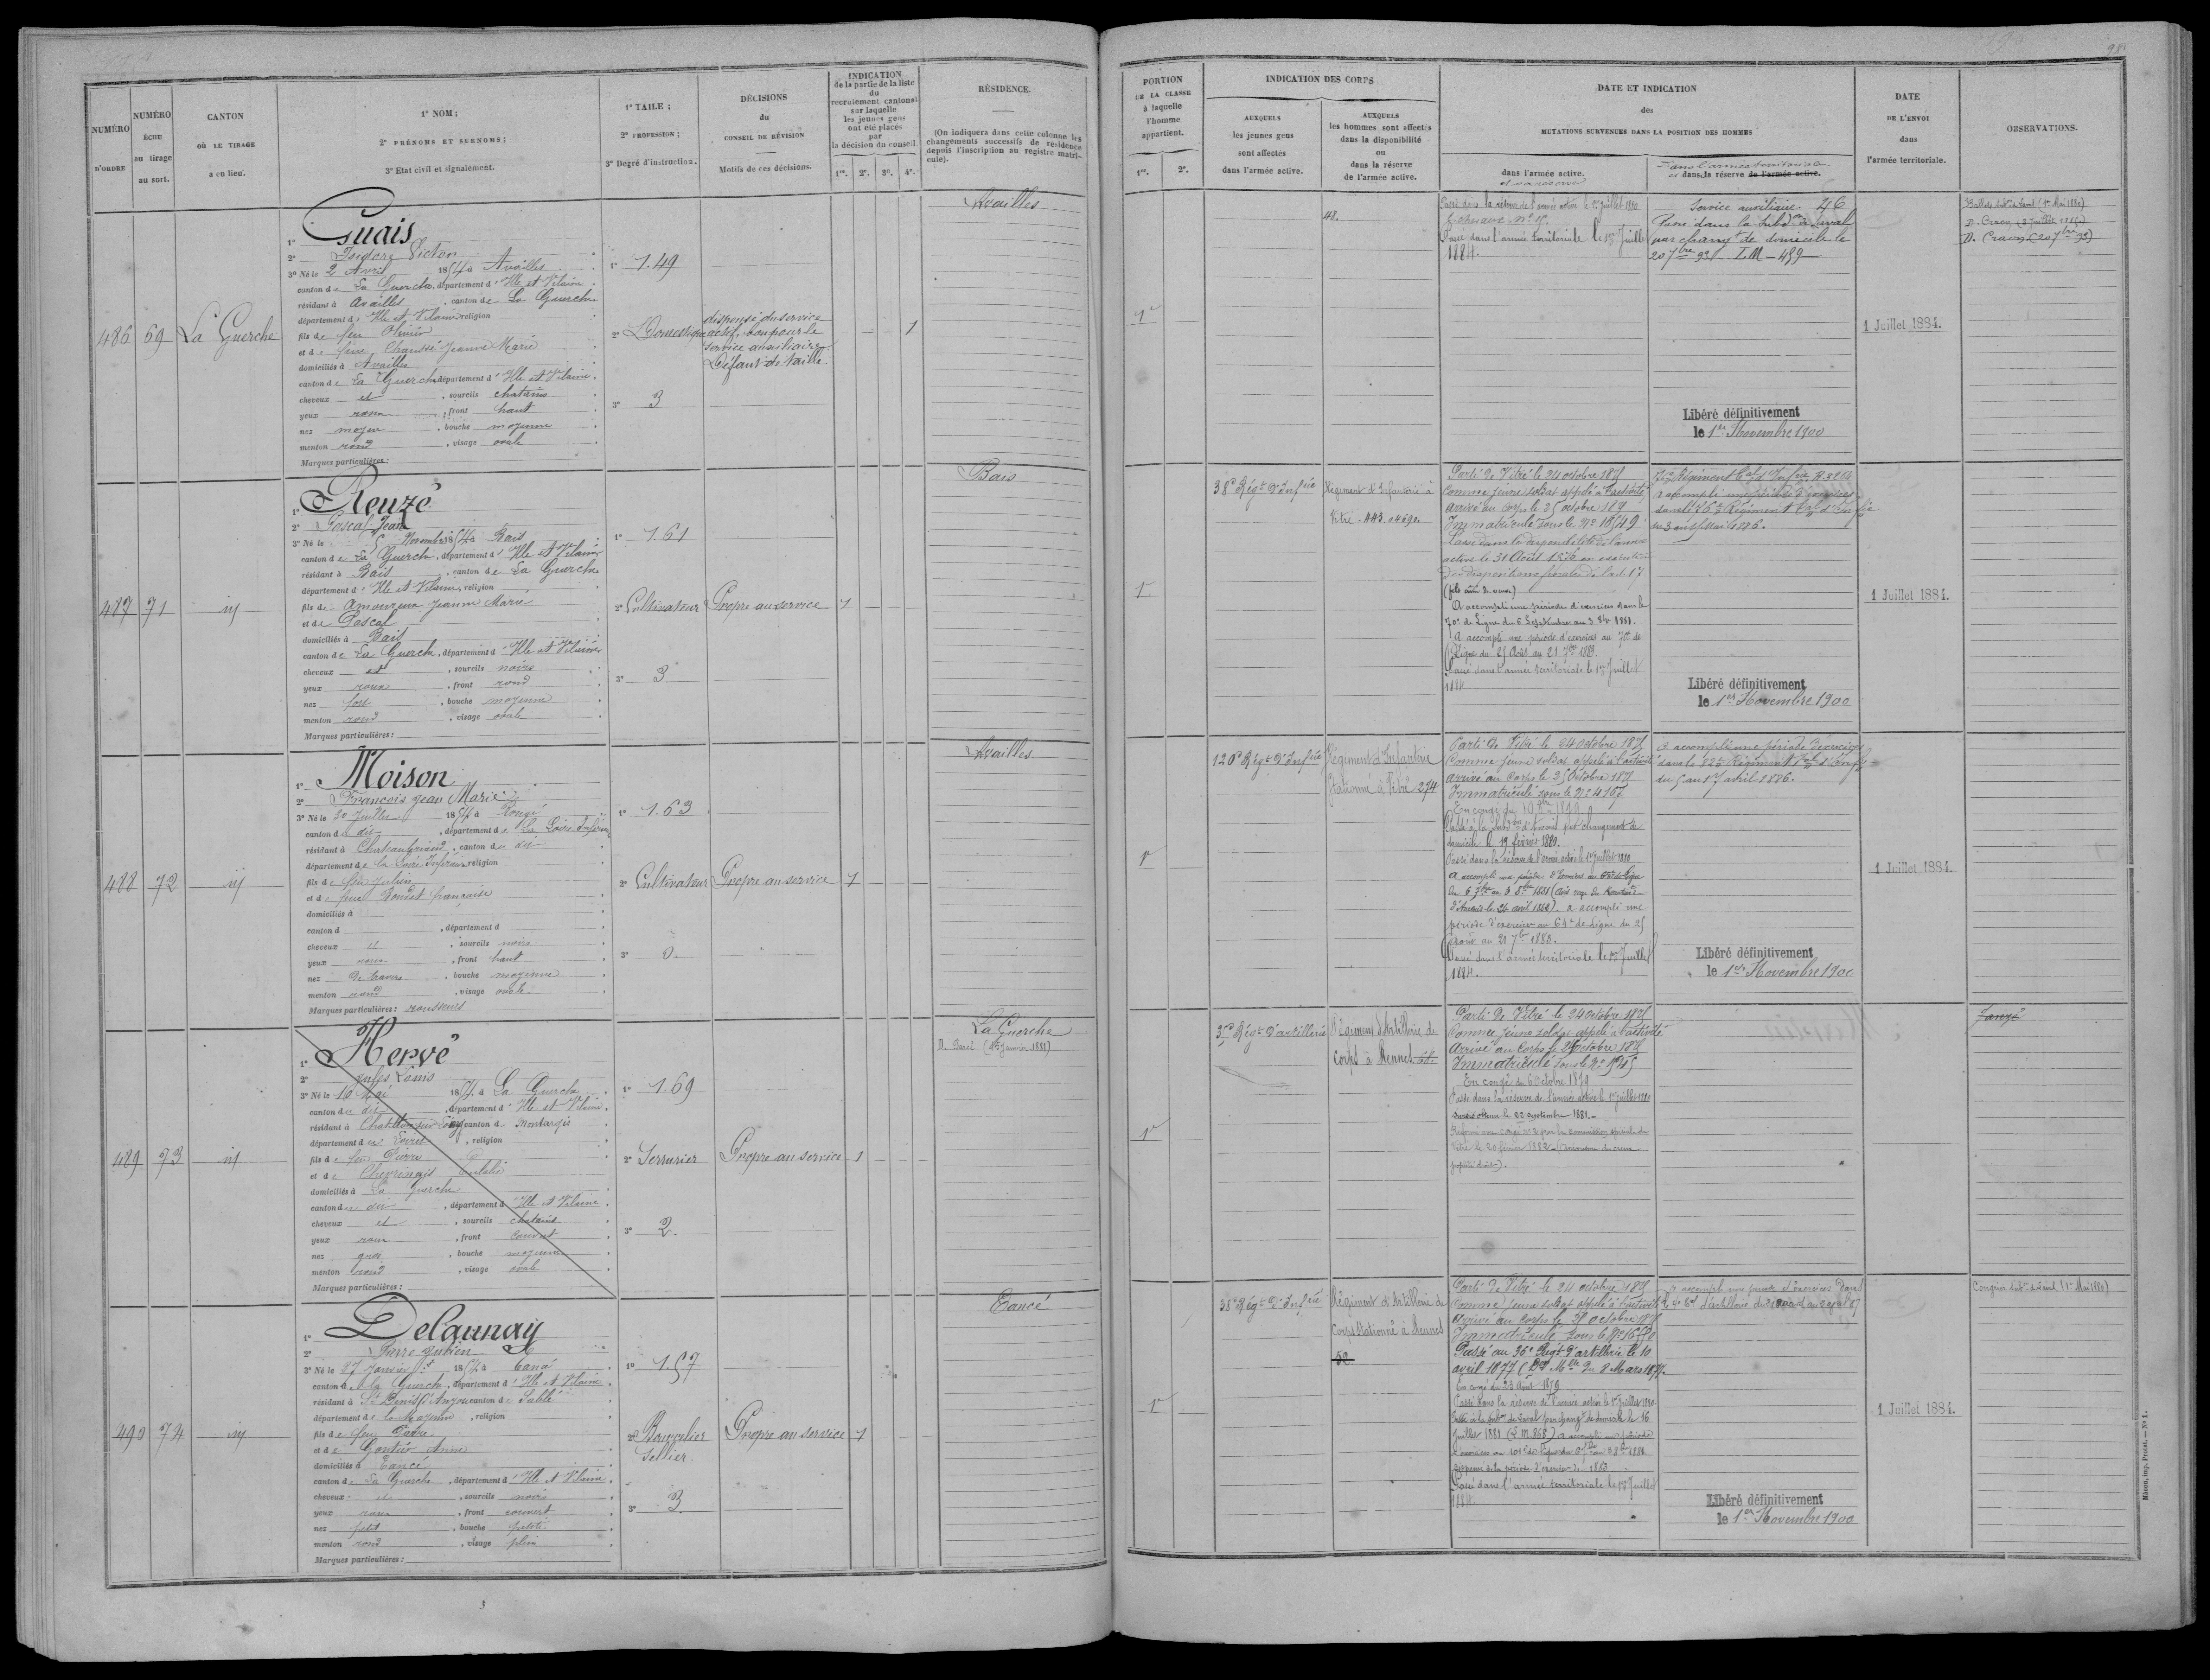 98
NUMÉRO D'ORDRE
NUMÉRO ÉCHU au tirage au sort.
CANTON OÙ LE TIRAGE a eu lieu.
1° NOM;
2° PRÉNOMS ET SURNOMS;
3° Etat civil et signalement.
1° TAILE;
2° PROFESSION;
3° Degré d'instruction.
DÉCISIONS
du
CONSEIL DE RÉVISION
Motifs de ces décisions.
INDICATION
de la partie de la liste
du
recrutement cantonal
sur laquelle
les jeunes gens
ont été placés
par
la décision du conseil.
1re. 2e. 3e. 4e.
RÉSIDENCE.
(On indiquera dans cette colonne les
changements successifs de résidence
depuis l'inscription au registre matri-
cule).
PORTION
DE LA CLASSE
à laquelle
l'homme
appartient.
1re. 2e.
INDICATION DES CORPS
AUXQUELS
les jeunes gens
sont affectés
dans l'armée active.
AUXQUELS
les hommes sont affectés
dans la disponibilité
ou
dans la réserve
de l'armée active.
DATE ET INDICATION
des
MUTATIONS SURVENUES DANS LA POSITION DES HOMMES
dans l'armée active.
et sa réserve
Dans l'armée territoriale
et dans la réserve de l'armée active.
DATE
DE L'ENVOI
dans
l'armée territoriale.
OBSERVATIONS.
486
69
La Guerche
1° Guais
2° Isidore Victor
3° Né le 2 Avril 1854 à Availles
canton de La Guerche, département d'Ille et Vilaine
résidant à Availles, canton de La Guerche
département d'Ille et Vilaine, religion
fils de feu Olivier
et de feue Chaussé Jeanne Marie
domiciliés à Availles
canton de La Guerche, département d'Ille et Vilaine.
cheveux et, sourcils chatains
yeux roux, front haut
nez moyen, bouche moyenne
menton rond, visage ovale
Marques particulières:
1° 1.49
2° Domestique
3° 3
dispensé du service
actif, bon pour le
service auxiliaire.
Défaut de taille
1
Availles
1re
48.
Passé dans la réserve de l'armée active le 1er Juillet 1880
Passé dans l'armée territoriale le 1er Juillet
1884.
Service auxiliaire. 46
Passé dans la Subdon de Laval
par changt de domicile le
20 7bre 92 - LM - 459
Libéré définitivement
le 1er Novembre 1900
1 Juillet 1884.
D. Craon (20 7bre 92)
487
71
id
1° Reuzé
2° Pascal Jean
3° Né le 5 Novembre 1854 à Bais
canton de La Guerche, département d'Ille et Vilaine
résidant à Bais, canton de La Guerche
département d'Ille et Vilaine, religion
fils de Amoureux Jeanne Marie
et de Pascal
domiciliés à Bais
canton de La Guerche, département d'Ille et Vilaine
cheveux et, sourcils noirs
yeux roux, front rond
nez fort, bouche moyenne
menton rond, visage ovale
Marques particulières:
1° 1.61
2° Cultivateur
3° 3
Propre au service
1
Bais
1re
38e Régt d'Infrie
Régiment d'Infanterie à
Vitré.
Parti de Vitré le 24 octobre 1875
Comme jeune soldat appelé à l'activité
arrivé au corps le 25 octobre 1875
Immatriculé sous le No 16549
Passé dans la disponibilité de l'armée
active le 31 Août 1876 en exécution
des dispositions finales de l'art. 17
(fils aîné de veuve)
A accompli une période d'exercices dans le
70e de Ligne du 6 Septembre au 3 8bre 1881.
A accompli une période d'exercices au 70e de
Ligne du 25 Août au 21 7bre 1883.
Passé dans l'armée territoriale le 1er Juillet
1884
a accompli une période d'exercices
Libéré définitivement
le 1er Novembre 1900
1 Juillet 1884.
488
72
id
1° Moison
2° François Jean Marie
3° Né le 30 Juillet 1854 à Rougé
canton du dit, département de La Loire Inférieure
résidant à Chateaubriand, canton du dit
département de la Loire Inférieure, religion
fils de feu Julien
et de feue Boudet françoise
domiciliés à
canton d, département d
cheveux et, sourcils noirs
yeux roux, front haut
nez de travers, bouche moyenne
menton rond, visage ovale
Marques particulières: rousseurs
1° 1.63
2° Cultivateur
3° 0.
Propre au service
1
Availles
1re
120e Régt d'Infrie
Régiment d'Infanterie
Stationné à Vitré 274
Parti de Vitré le 24 octobre 1875
Comme jeune soldat appelé à l'activité
arrivé au Corps le 25 Octobre 1875
Immatriculé sous le No 4167
Passé à la Subdon d'Ancenis par changement de
domicile le 19 février 1880.
Passé dans la réserve de l'armée active le 1er juillet 1880
période d'exercices au 64e de Ligne du 25
août au 21 7bre 1883.
Passé dans l'armée territoriale le 1er Juillet
1884.
a accompli une période d'exercices
dans le 82e Régiment d'Infie
du 5 au 17 avril 1886.
Libéré définitivement
le 1er Novembre 1900
1 Juillet 1884.
489
73
id
1° Hervé
2° Jules Louis
3° Né le 10 Mai 1854 à La Guerche
canton du dit, département d'Ille et Vilaine.
résidant à Chatillon sur Loing, canton de Montargis
département du Loiret, religion
fils de feu Pierre
et de Chevrinais Eulalie
domiciliés à La Guerche
canton du dit, département d'Ille et Vilaine.
cheveux et, sourcils chatains
yeux roux, front couvert
nez gros, bouche moyenne
menton rond, visage ovale
Marques particulières:
1° 1.69
2° Serrurier
3° 2.
Propre au service
1
La Guerche
D. Gercé (15 Janvier 1881)
1re
Régt d'artillerie
Régiment d'Artillerie de
Corps à Rennes
Parti de Vitré le 24 octobre 1875
Comme jeune soldat appelé à l'activité
Arrivé au Corps le 26 octobre 1875
Immatriculé sous le No
En congé du 6 Octobre 1879
Passé dans la réserve de l'armée active le 1er juillet 1880
Sursis obtenu le 22 septembre 1881.
Vitré le 20 février 1882
490
74
id
1° Delaunay
2° Pierre Julien
3° Né le 27 Janvier 1854 à Tancé
canton de la Guerche, département d'Ille et Vilaine
résidant à St Denis d'Anjou canton de Sablé
département de la Mayenne, religion
fils de feu Pierre
et de Gontier Anne
domiciliés à Tancé
canton de La Guerche, département d'Ille et Vilaine
cheveux et, sourcils noirs
yeux roux, front couvert
nez petit, bouche petite
menton rond, visage plein
Marques particulières:
1° 1.57
2° Bourrelier
Sellier.
3° 3.
Propre au service
1
Tancé
1re
38e Régt d'Infrie
Régiment d'Artillerie de
Corps Stationné à Rennes
52
Parti de Vitré le 24 octobre 1875
Comme jeune soldat appelé à l'activité
Arrivé au Corps le octobre 1875
Immatriculé sous le No
Passé au 35e Régt d'artillerie le 10
avril 1877 (Don Mlle du 8 Mars 1877.
En congé du 23 Août 1879
Passé dans la réserve de l'armée active le 1er Juillet 1880.
Passé à la Subon de Laval par changt de domicile le 16
Juillet 1881 (L.M. 868) a accompli une période
Dispensé de la période d'exercices de 1883
Passé dans l'armée territoriale le 1er Juillet
1884.
a accompli une période d'exercices dans
Libéré définitivement
le 1er Novembre 1900
1 Juillet 1884.
Mâcon, imp. Protat. — No 1.